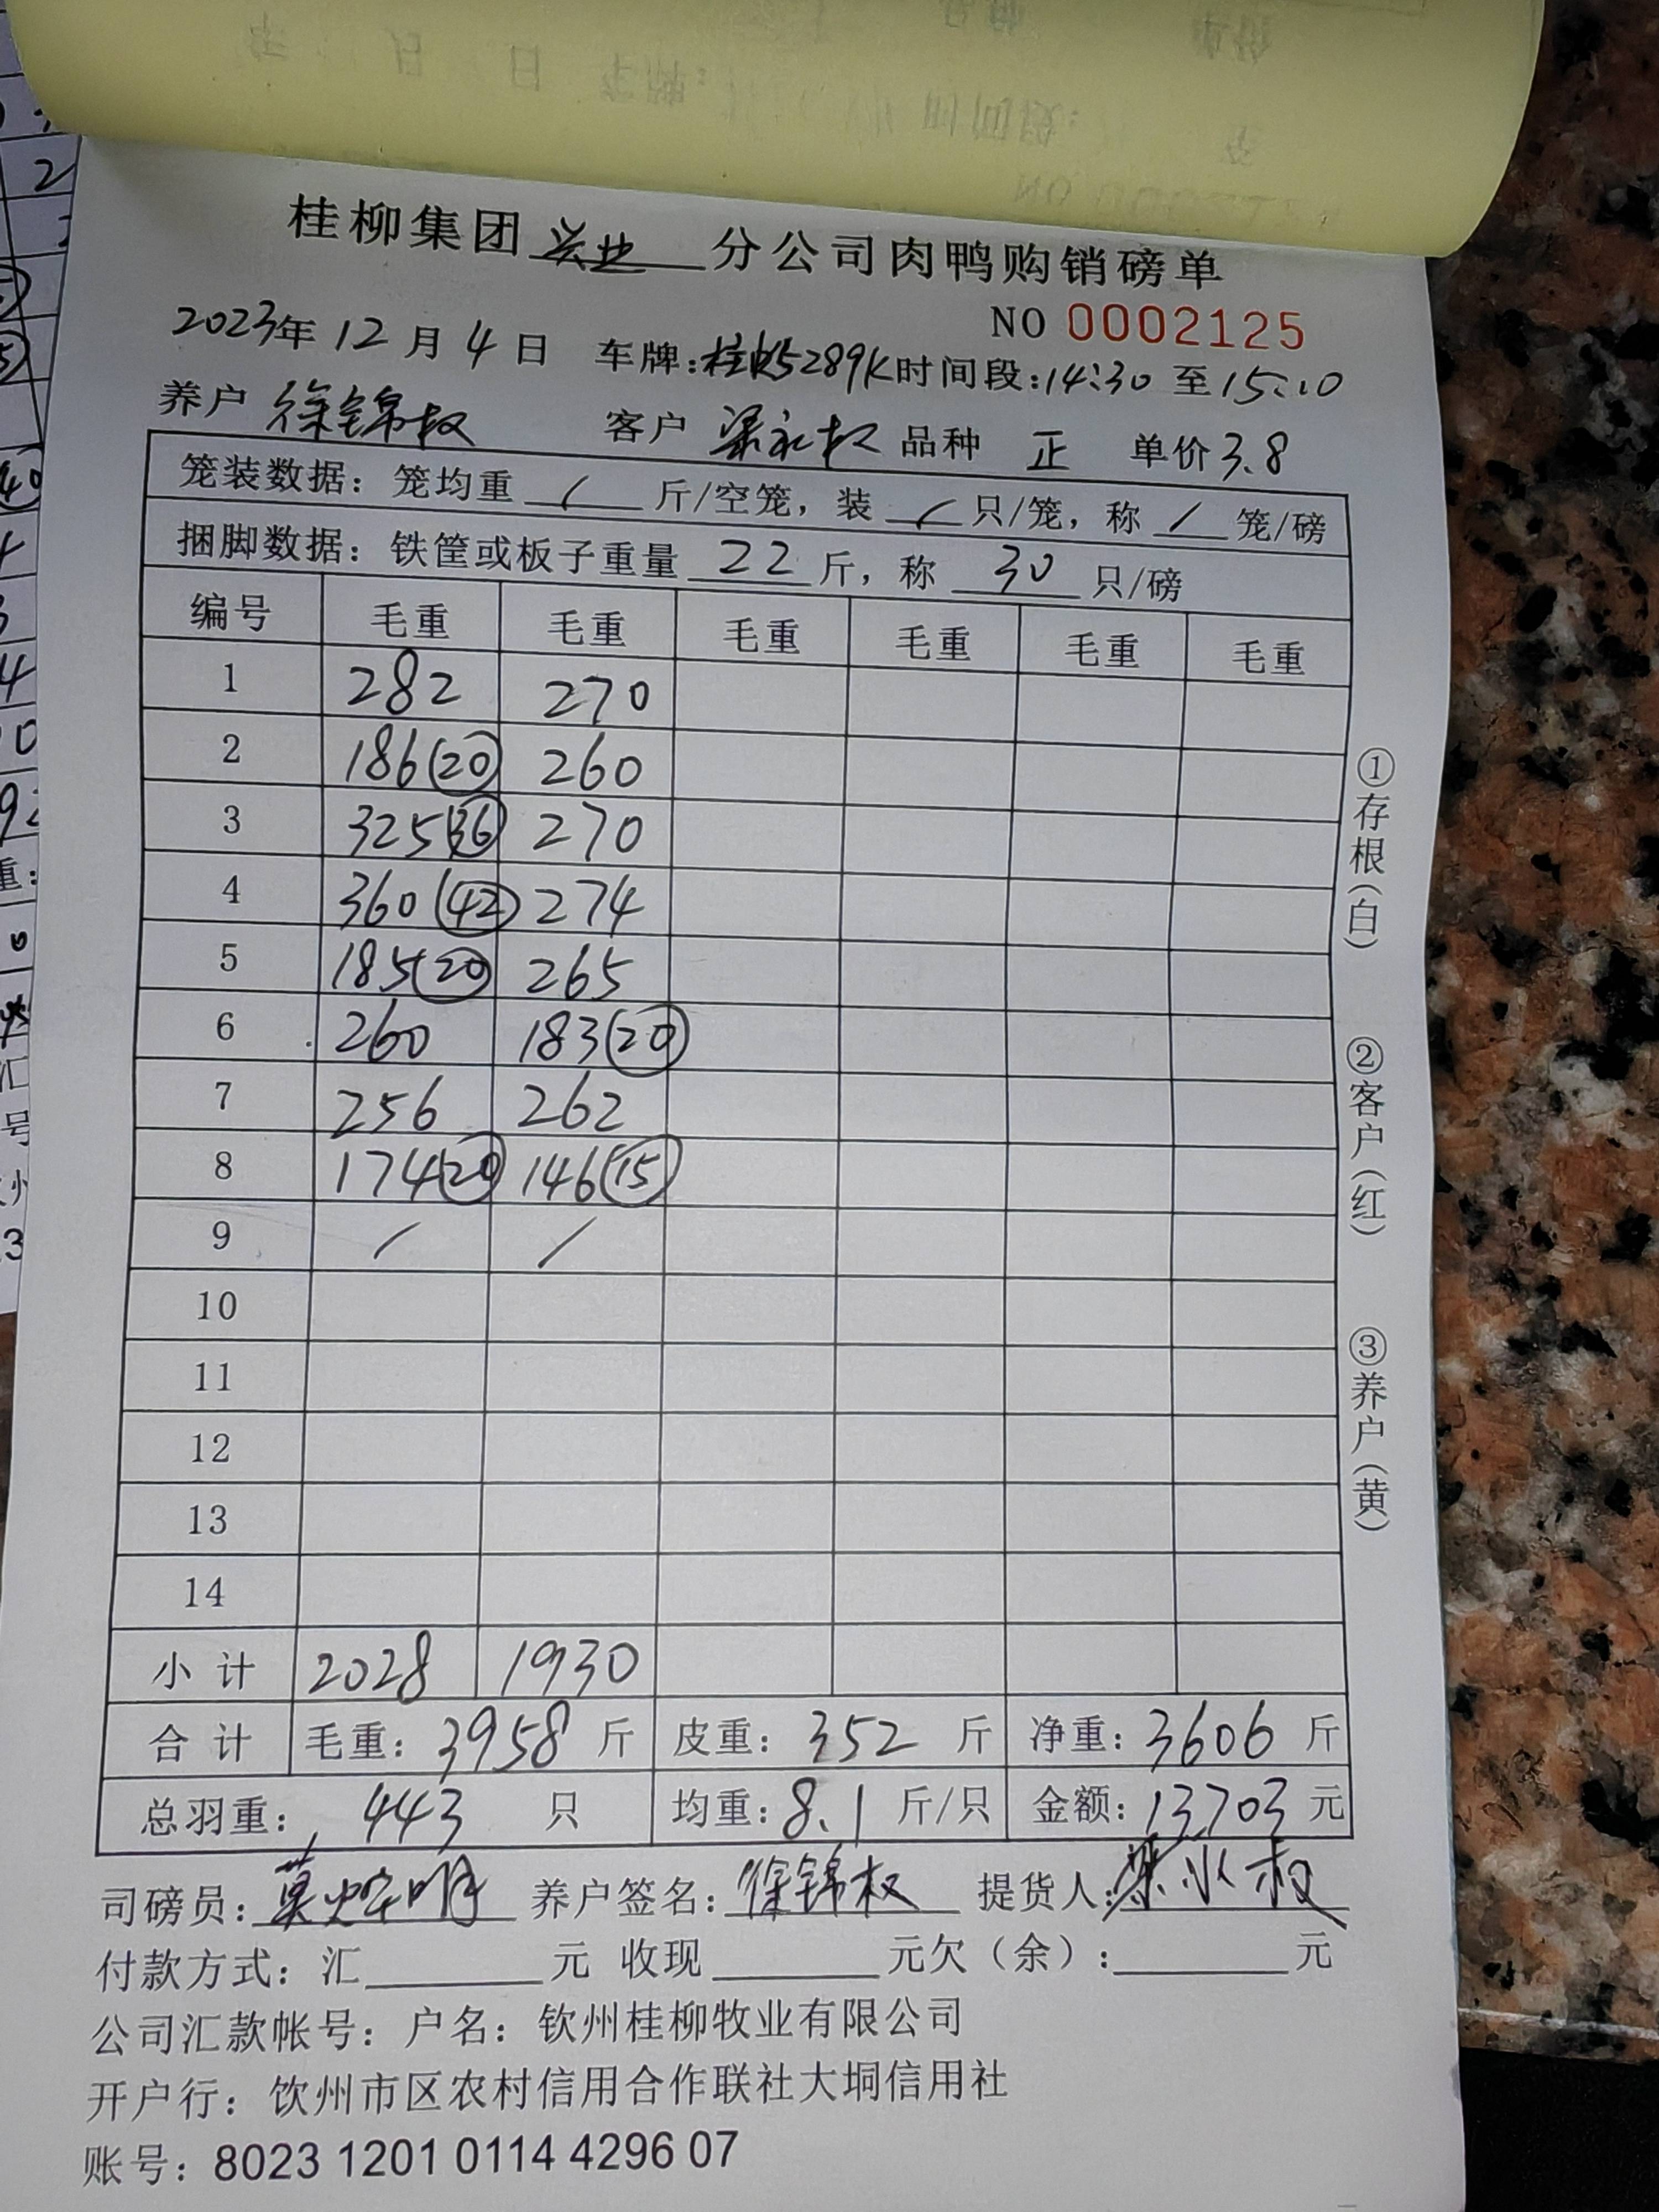 桂柳集团 兴业 分公司肉鸭购销磅单
NO 0002125
2023年 12 月 4 日 车牌:桂 5289K 时间段:14:30 至 15:10
养户 徐锦权 客户 梁永权 品种 正 单价 3.8
笼装数据: 笼均重 / 斤/空笼, 装 / 只/笼, 称 / 笼/磅
捆脚数据: 铁筐或板子重量 22 斤, 称 30 只/磅
编号 毛重 毛重 毛重 毛重 毛重 毛重
1 282 270
2 186(20) 260
3 325(36) 270
4 360(42) 274
5 185(20) 265
6 260 183(20)
7 256 262
8 174(20) 146(15)
9 / /
10
11
12
13
14
小计 2028 1930
合计 毛重: 3958 斤 皮重: 352 斤 净重: 3606 斤
总羽重: 443 只 均重: 8.1 斤/只 金额: 13703 元
司磅员: 莫 明 养户签名: 徐锦权 提货人: 梁永权
付款方式: 汇 元 收现 元欠(余): 元
公司汇款帐号: 户名: 钦州桂柳牧业有限公司
开户行: 饮州市区农村信用合作联社大垌信用社
账号: 8023 1201 0114 4296 07
①存根(白)
②客户(红)
③养户(黄)